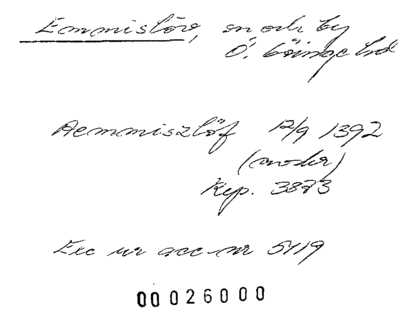 Emmislöv, sn och by
Ö. Göinge hd
Aemmiszlöff 12/9 1392
(avskr)
Rep. 3873
Exc ur acc nr 5419
00 026000